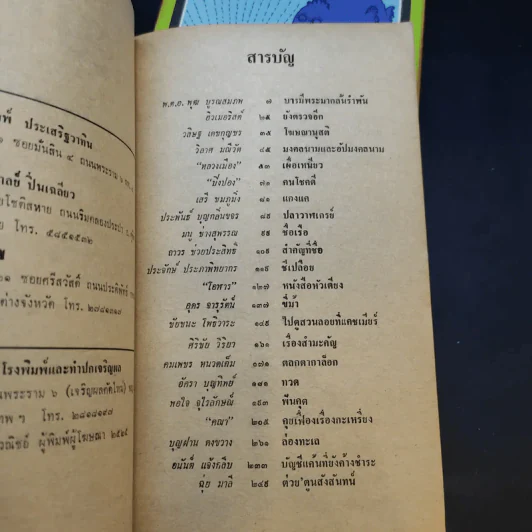 พ์ ประเสริฐวาทิน
ซอยมั่นสิน ๔ ถนนพระราม
าลย์ ปิ่นเฉลียว
โชติสหาย ถนนริมคลองประปา
โทร. ๕๘๔๑๕๓๒
ซอยศรีสวัสดิ์ ถนนประดิพัทธ์
ต่างจังหวัด โทร. ๒๗๘๔๑๓๗๑
โรงพิมพ์และทำปกเจริญผล
นพระราม ๖ (เจริญผลตัดใหม่)
เทพ ฯ โทร.
วณิชย์ ผู้พิมพ์ผู้โฆษณา ๒๕๒๔
สารบัญ
พ.ต.อ. พุฒ บูรณสมภพ ๗ บารมีพระมากล้นรำพัน
ฮิวเมอริสต์ ๒๕ ยังตรวจอีก
วสิษฐ เดชกุญชร ๓๕ โฆษณานุสติ
วิลาศ มณีวัต ๔๕ มงคลนามและอัปมงคลนาม
"หลวงเมือง" ๕๓ เผื่อเหนียว
"มิ่งปอง" ๗๑ คนโชคดี
เสรี ชมภูมิ่ง ๘๑ แกงแค
ประพันธ์ บุญกลิ่นขจร ๘๙ ปลาวาฬเกรย์
มนู ช่างสุพรรณ ๙๙ ชื่อเรือ
ถาวร ช่วยประสิทธิ์ ๑๐๙ สำคัญที่ชื่อ
ประจักษ์ ประภาพิทยากร ๑๑๙ ชีเปลือย
"โอหาร" ๑๒๗ หนังสือหัวเตียง
อุดร จารุรัตน์ ๑๓๗ ขี่ม้า
ชัยชนะ โพธิวาระ ๑๔๙ ไปดูสวนลอยที่แคชเมียร์
ศิริชัย วิริยา ๑๖๑ เรื่องสำมะคัญ
คนเพชร หนวดเต็ม ๑๗๑ ตลกดากาล็อก
อัศรา บุญทิพย์ ๑๘๑ ทวด
พอใจ จุไรลักษณ์ ๑๙๓ ฟันคุด
"คณา" ๒๐๕ คุยเฟื่องเรื่องกะเหรี่ยง
บุญฝาน คงขวาง ๒๖๑ ล่องทะเล
อนันต์ แจ้งกลีบ ๒๓๓ บัญชีแค้นที่ยังค้างชำระ
ฉุ่ย มาลี ๒๔๙ ด่วย'ตูนสังสันทน์